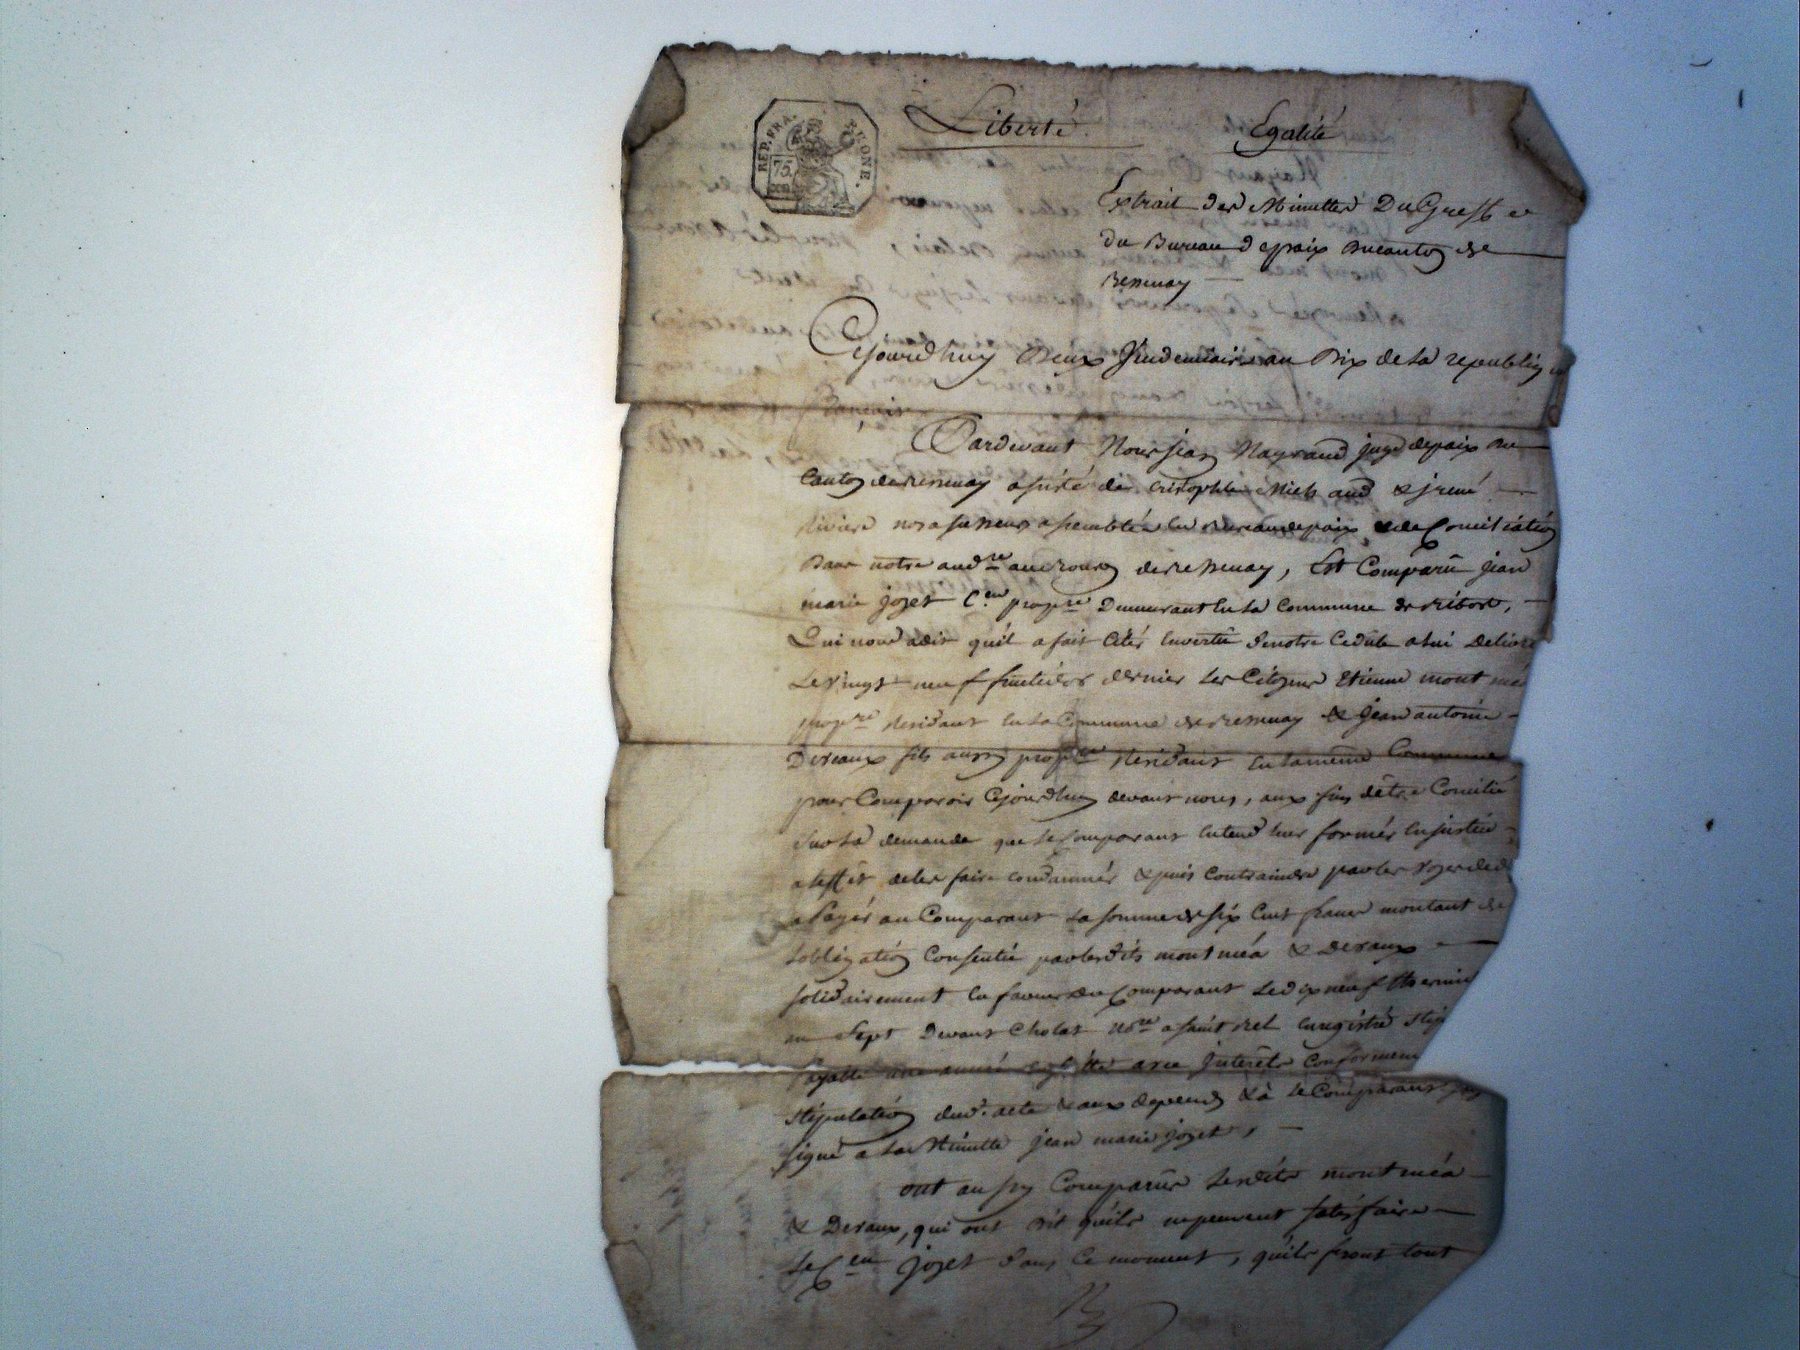 REP. FRA. 75. PUB. ONE.
Liberté Egalité
Extrait des Minuttes Du Greffe et
du Bureau de paix Du canton de
Cejourdhuy Deux Vendemiaire an Dix de la republique
francaise
Pardevant Nous Jean Nayraud juge de paix Du
Canton de assisté de Cristophle Michaud & jrené
Riviere nos assesseurs assemblés en Bureau de paix & de Conciliation
Dans notre aud.re au Bourg de , Est Comparu jean
marie jozet C.en prop.re Demeurant en la Commune de ,
Qui nous a dit qu'il a fait Citér en vertu de notre Cedule a lui Delivré
Le vingt neuf fructidor dernier les Citoyens Etienne mont méa
prop.re Residant en la Commune de & jean antoine
Devaux fils aussy prop.re Residant en la même Commune
pour Comparoir Cejourdhuy devant nous, aux fins d'être Concilié
Sur la demande que le Comparant entend leur formér en justice
a leffet de les faire condamnér & puis contraindre par les voyes de d
a Payér au Comparant La somme de six Cent francs montant de
Lobligation Consentie par lesdits mont méa & Devaux
solidairement en faveur du Comparant Le dix neuf thermid
an Sept Devant Cholat no.re a enregistré
Payable une année avec jnterêts conformem
stipulation dud. acte & aux depends & à Le Comparant
signé a La Minutte jean marie jozet,
ont aussy Comparus Lesdits mont méa
& Devaux, qui ont Dit qu'ils ne peuvent satisfaire
Le C.en jozet dans ce moment, qu'ils feront tout